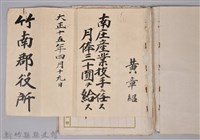 黃章紹
南庄産業技手ニ任ス
月俸三十圓ヲ給ス
大正十五年四月十九日
竹南郡役所